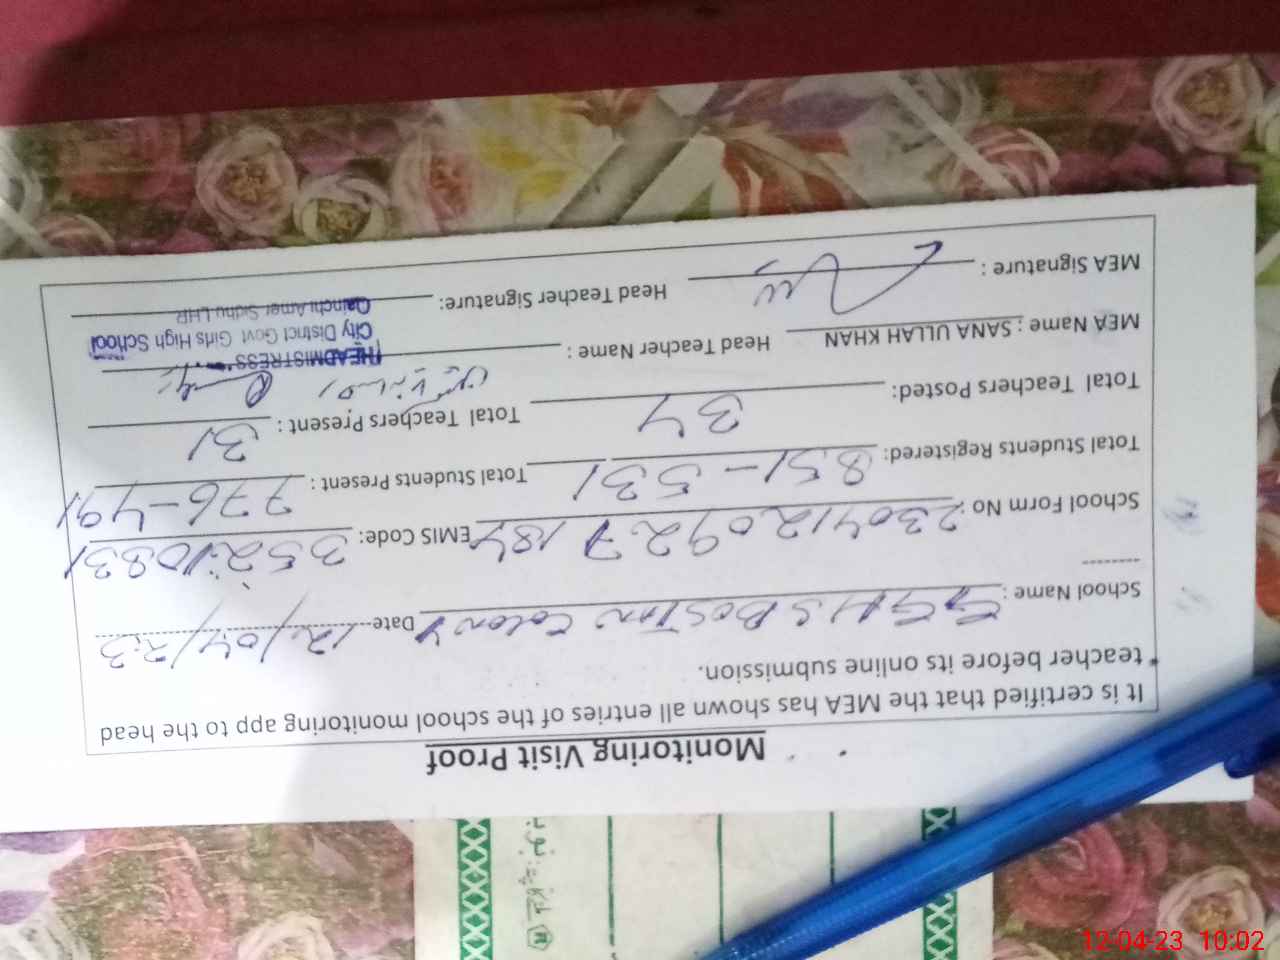 Monitoring Visit Proof
It is certified that the MEA has shown all entries of the school monitoring app to the head
* teacher before its online submission.
School Name : GGHS BOSTAN Colony Date 12/04/23
School Form No : 230412092718 EMIS Code: 35210831
Total Students Registered: 851-531 Total Students Present : 776-491
Total Teachers Posted: 34 Total Teachers Present : 31
MEA Name : SANA ULLAH KHAN Head Teacher Name :
HEADMISTRESS
City District Govt Girls High School
Qainchi Amer Sidhu LHR
MEA Signature : Head Teacher Signature:
12-04-23 10:02